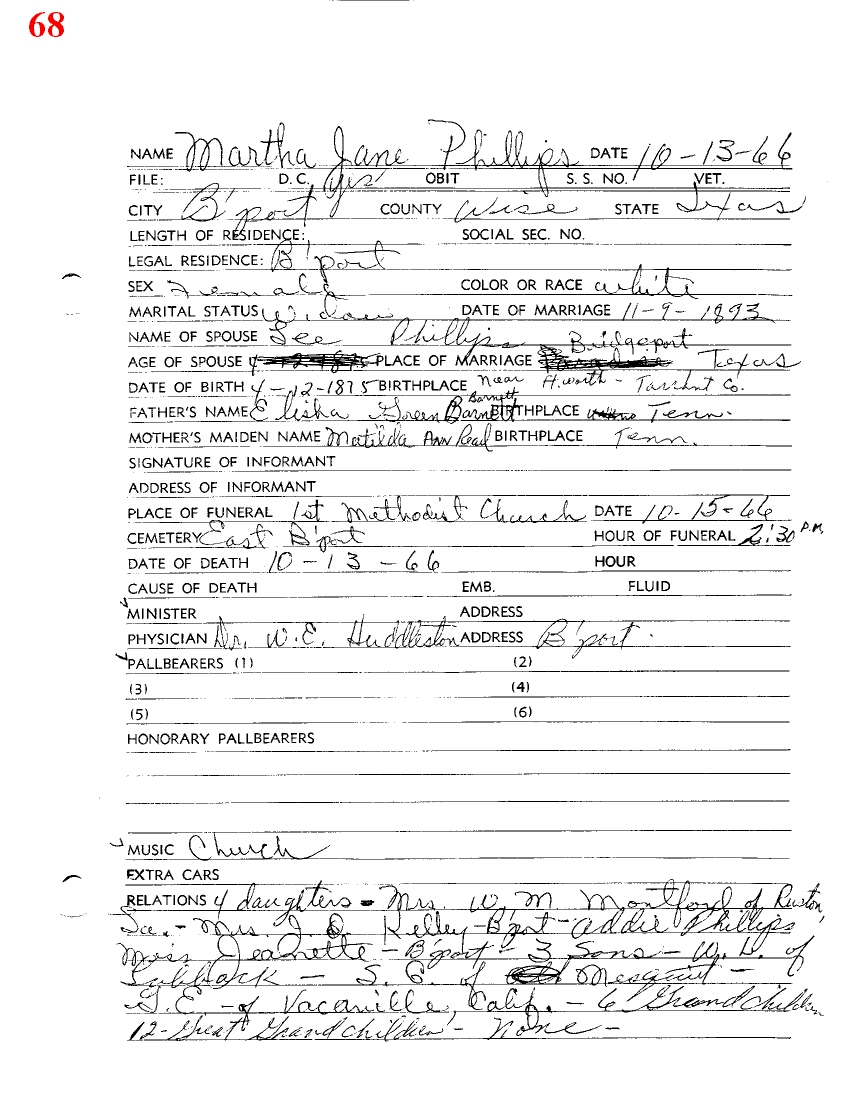 68
NAME Martha Jane Phillips DATE 10-13-66
FILE: D.C. yes OBIT S. S. NO. VET.
CITY B'port COUNTY Wise STATE Texas
LENGTH OF RESIDENCE: SOCIAL SEC. NO.
LEGAL RESIDENCE: B'port
SEX Female COLOR OR RACE white
MARITAL STATUS Widow DATE OF MARRIAGE 11-9-1893
NAME OF SPOUSE Lee Phillips Bridgeport
AGE OF SPOUSE PLACE OF MARRIAGE Texas
DATE OF BIRTH 4-12-1875 BIRTHPLACE near Ft. worth - Tarrant Co.
Barnett
FATHER'S NAME Elisha Green Barnett BIRTHPLACE Tenn.
MOTHER'S MAIDEN NAME Matilda Ann Read BIRTHPLACE Tenn.
SIGNATURE OF INFORMANT
ADDRESS OF INFORMANT
PLACE OF FUNERAL 1st Methodist Church DATE 10-15-66
CEMETERY East B'port HOUR OF FUNERAL 2:30 P.M.
DATE OF DEATH 10-13-66 HOUR
CAUSE OF DEATH EMB. FLUID
MINISTER ADDRESS
PHYSICIAN Dr. W.E. Huddleston ADDRESS B'port.
PALLBEARERS (1) (2)
(3) (4)
(5) (6)
HONORARY PALLBEARERS
MUSIC Church
EXTRA CARS
RELATIONS 4 daughters - Mrs. W. M. Montford of Ruston,
La. - Mrs. J. O. Kelley - B'port - Addie Phillips
Miss Jeanette - B'port - 3 Sons - W. L. of
Lubbock - S. C. of Mesquite -
G.E. - of Vacaville, Calif. - 6 Grandchildren
12 - Great Grandchildren - none -